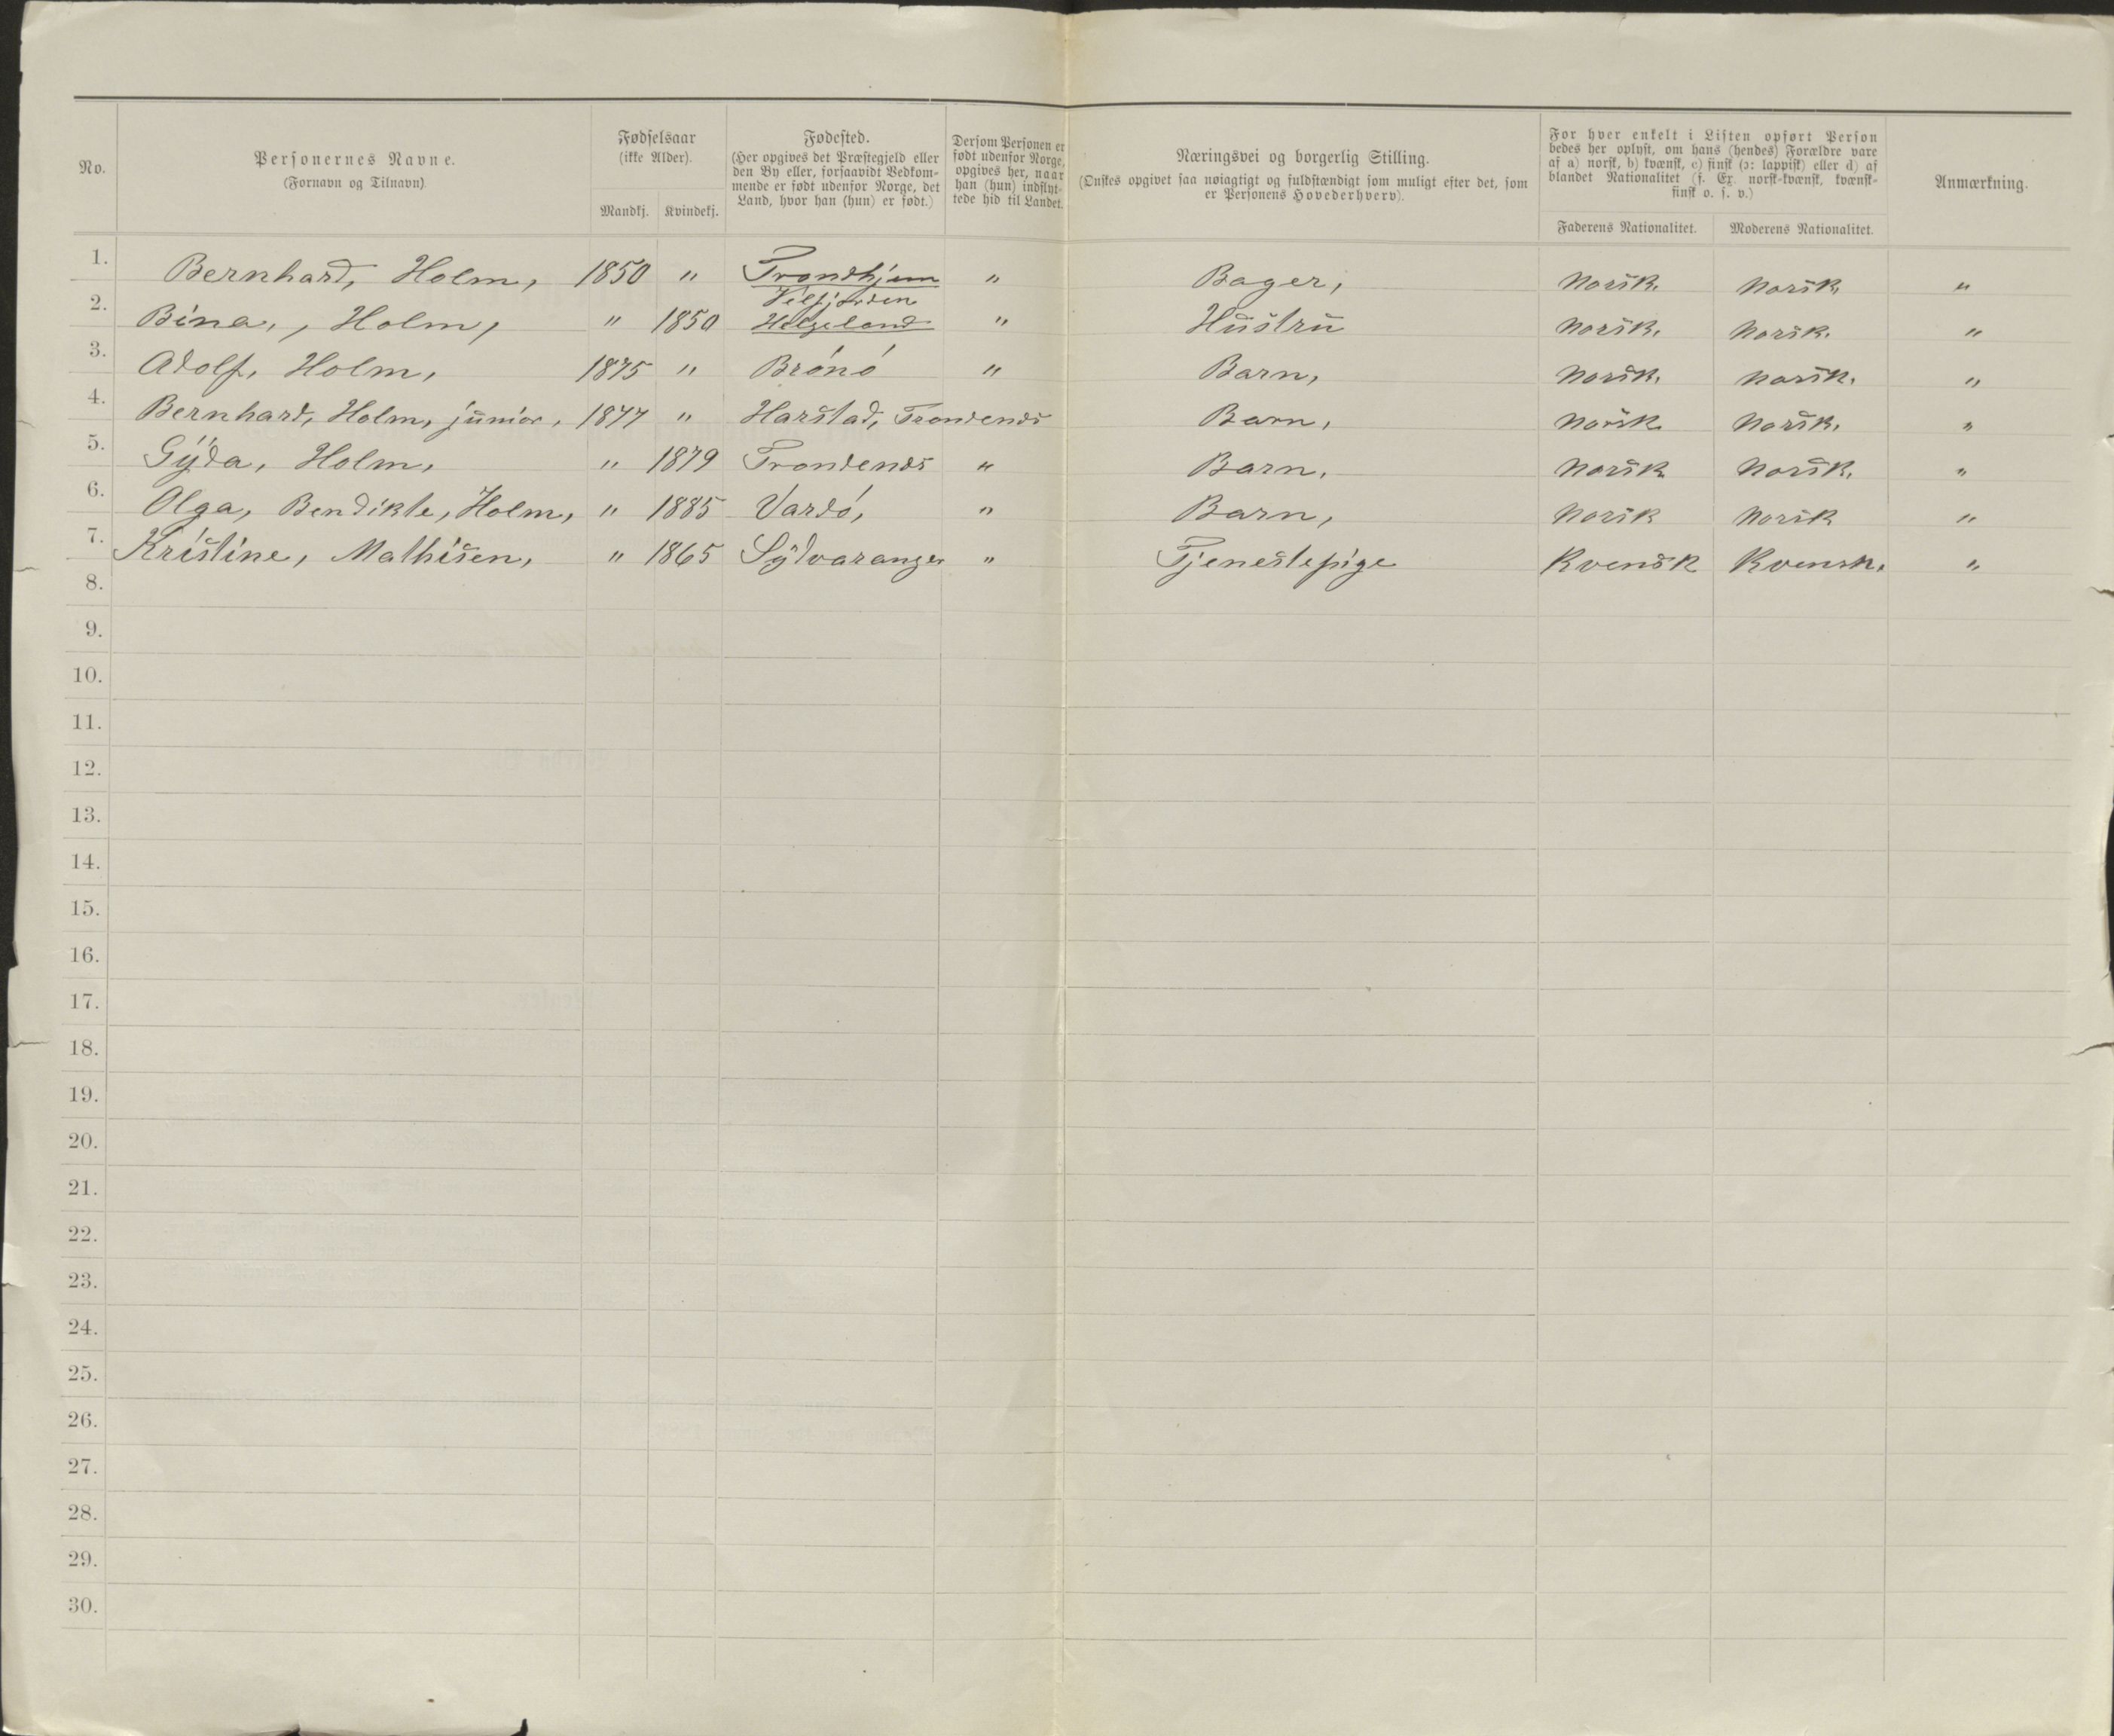 No.
Personernes Navne.
(Fornavn og Tilnavn)
Fødselsaar
(ikke Alder).
Mandkj. Kvindekj.
Fødested.
(Her opgives det Præstegjeld eller
den By eller, forsaavidt Vedkom-
mende er født udenfor Norge, det
Land, hvor han (hun) er født.)
Dersom Personen er
født udenfor Norge,
opgives her, naar
han (hun) indflyt-
tede hid til Landet.
Næringsvei og borgerlig Stilling.
(Ønskes opgivet saa nøiagtigt og fuldstændigt som muligt efter det, som
er Personens Hovederhverv).
For hver enkelt i Listen opført Person
bedes her oplyst, om hans (hendes) Forældre vare
af a) norsk, b) kvænsk, c) finsk (ɔ: lappisk) eller d) af
blandet Nationalitet (f. Ex. norsk-kvænsk, kvænsk-
finsk o. s. v.)
Faderens Nationalitet. Moderens Nationalitet.
Anmærkning.
1. Bernhard, Holm, 1850 " Trondhjem " Bager, Norsk. Norsk, "
Velfjorden
2. Bina,, Holm, " 1850 Helgeland " Hustru Norsk. Norsk. "
3. Adolf, Holm, 1875 " Brónó " Barn, Norsk. Norsk. "
4. Bernhard, Holm, junior, 1877 " Harstad, Trondends Barn, Norsk Norsk. "
5. Gyda, Holm, " 1879 Trondends " Barn. Norsk Norsk. "
6. Olga, Bendikte, Holm, " 1885 Vardó, " Barn, Norsk Norsk "
7. Kristine, Mathisen, " 1865 Sydvaranger " Tjenestepige Kvensk Kvensk. "
8.
9.
10.
11.
12.
13.
14.
15.
16.
17.
18.
19.
20.
21.
22.
23.
24.
25.
26.
27.
28.
29.
30.